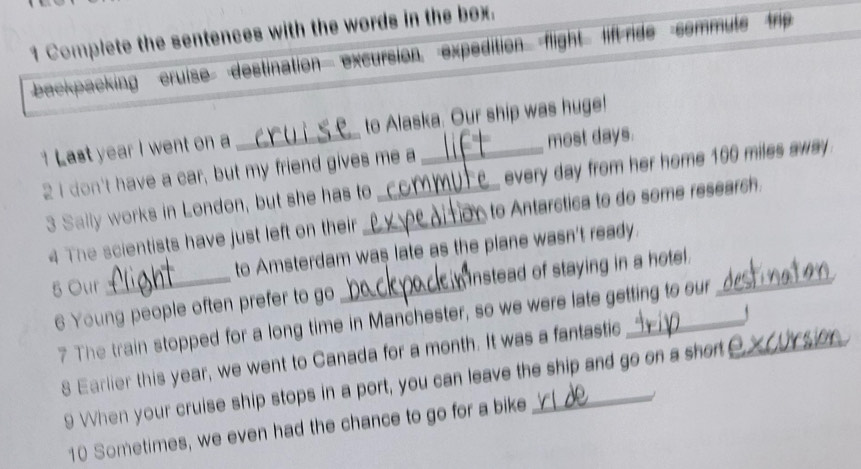 1 Complete the sentences with the words in the box.
backpacking cruise destination excursion expedition flight lift ride commute trip
1 Last year I went on a cruise to Alaska. Our ship was huge!
2 I don't have a car, but my friend gives me a lift most days.
3 Sally works in London, but she has to commute every day from her home 100 miles away.
4 The scientists have just left on their expedition to Antarctica to do some research.
5 Our flight to Amsterdam was late as the plane wasn't ready.
6 Young people often prefer to go backpacking instead of staying in a hotel.
7 The train stopped for a long time in Manchester, so we were late getting to our destinaton.
8 Earlier this year, we went to Canada for a month. It was a fantastic trip!
9 When your cruise ship stops in a port, you can leave the ship and go on a short excursion.
10 Sometimes, we even had the chance to go for a bike ride.